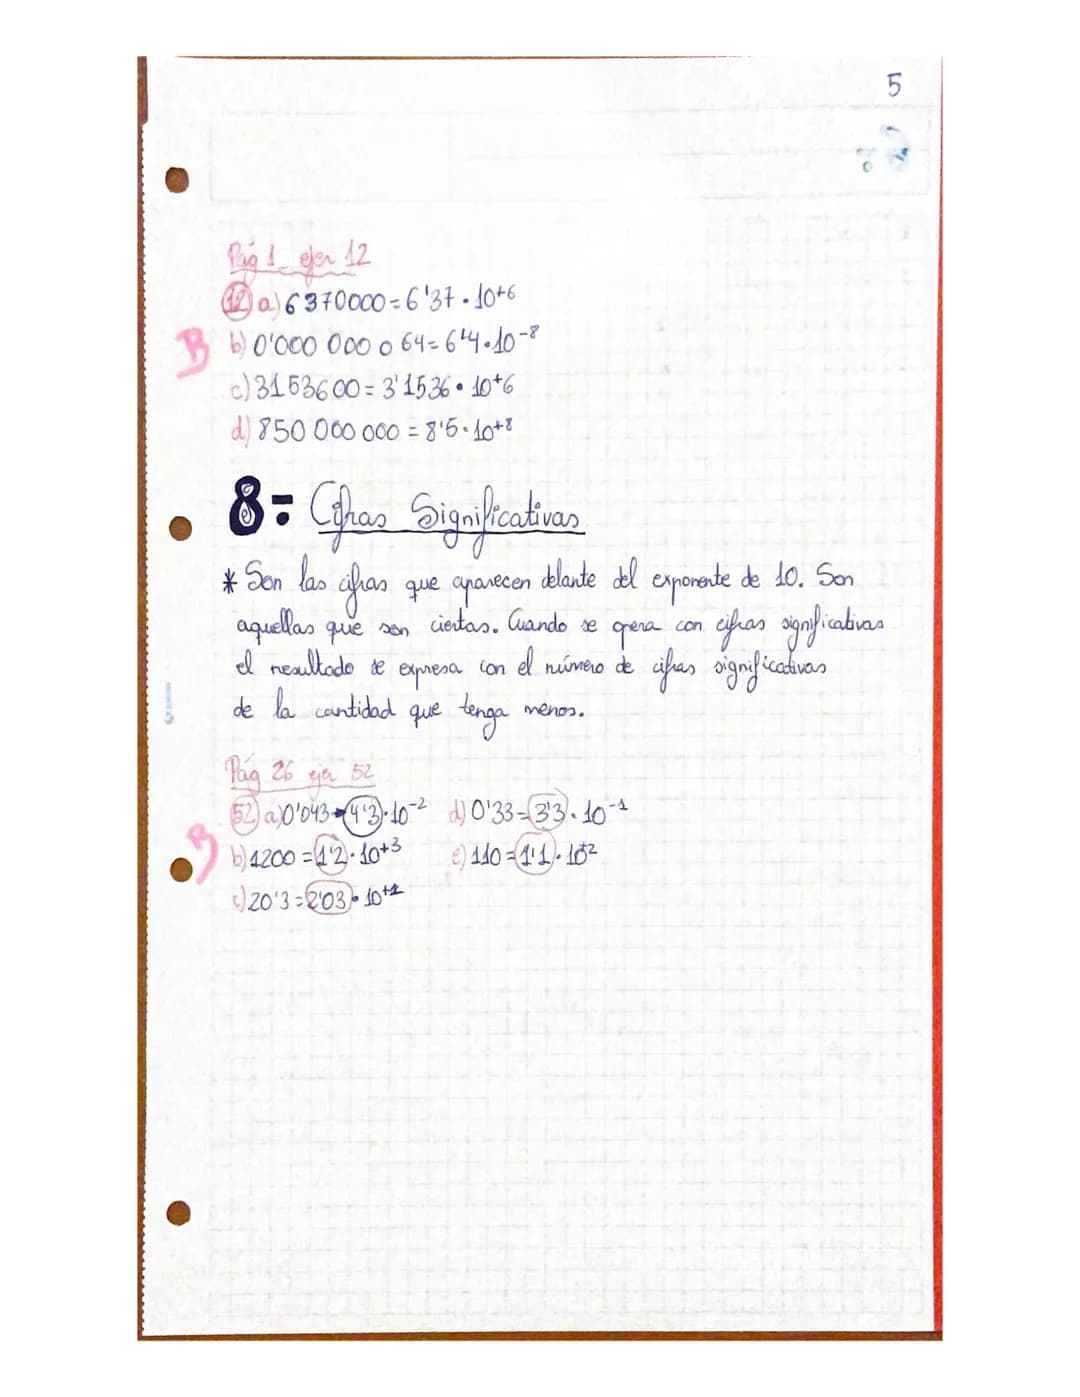 5
Pág 1 ejer 12
12 a) 6370000=6'37·10+6
B b) 0'000 000 0 64=6'4·10-8
c) 3153600=3'1536·10+6
d) 850 000 000=8'5·10+8
8= Cifras Significativas
* Son las cifras que aparecen delante del exponente de 10. Son
aquellas que son ciertas. Cuando se opera con cifras significativas
el resultado se expresa con el número de cifras significativas
de la cantidad que tenga menos.
Pág 26 ejer 52
52 a) 0'043→4'3·10-2 d) 0'33=3'3·10-1
B b) 1200=1'2·10+3 e) 110=1'1·10+2
c) 20'3=2'03·10+1